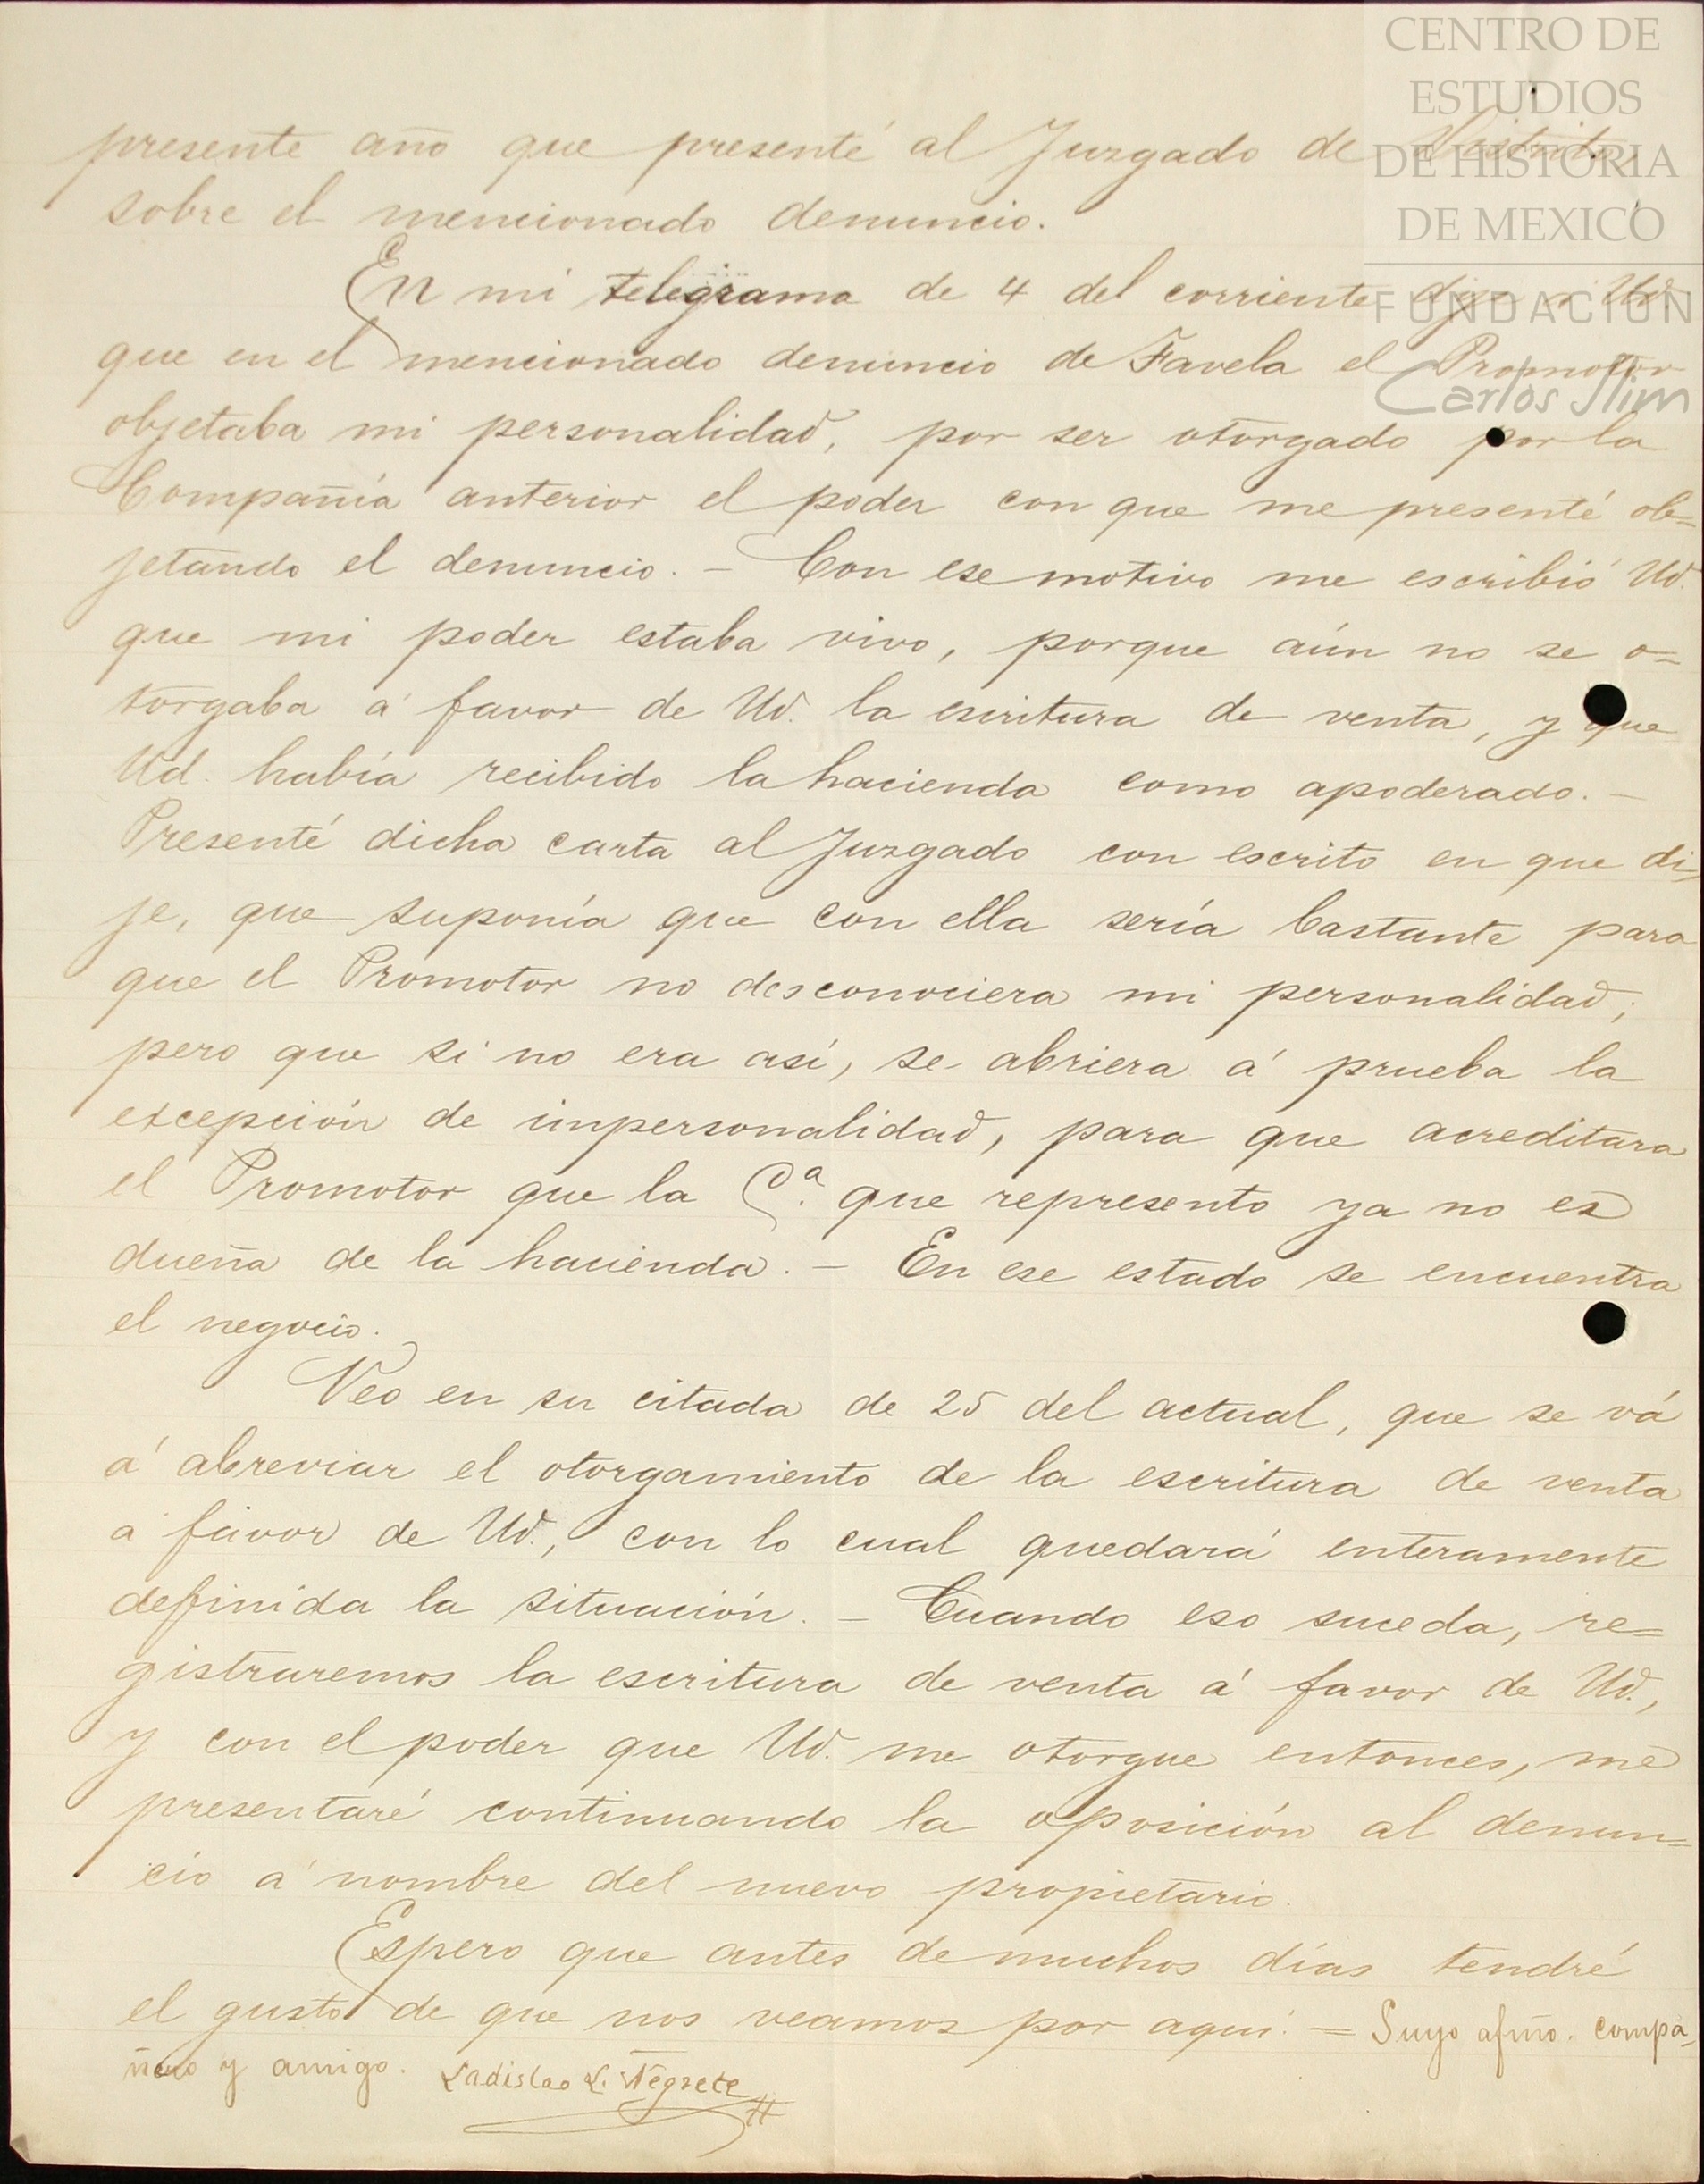 CENTRO DE
ESTUDIOS
DE HISTORIA
DE MEXICO
FUNDACIÓN
Carlos Slim
presente año que presenté al Juzgado de Distrito,
sobre el mencionado denuncio.
En mi telegrama de 4 del corriente dije a Ud.
que en el mencionado denuncio de Favela el Promotor
objetaba mi personalidad, por ser otorgado por la
Compañía anterior el poder con que me presenté ob=
jetando el denuncio. - Con ese motivo me escribió Ud.
que mi poder estaba vivo, porque aún no se o=
torgaba á favor de Ud. la escritura de venta, y que
Ud. había recibido la hacienda como apoderado. -
Presenté dicha carta al Juzgado con escrito en que di-
je, que suponía que con ella sería bastante para
que el Promotor no desconociera mi personalidad;
pero que si no era así, se abriera á prueba la
excepción de impersonalidad, para que acreditara
el Promotor que la C.ª que represento ya no es
dueña de la hacienda. - En ese estado se encuentra
el negocio.
Veo en su citada de 25 del actual, que se vá
á abreviar el otorgamiento de la escritura de venta
a favor de Ud., con lo cual quedará enteramente
definida la situación. - Cuando eso suceda, re=
gistraremos la escritura de venta á favor de Ud.,
y con el poder que Ud. me otorgue entonces, me
presentaré continuando la oposición al denun=
cio a nombre del nuevo propietario.
Espero que antes de muchos días tendré
el gusto de que nos veamos por aquí. = Suyo afmo. compa-
ñero y amigo. Ladislao L. Negrete